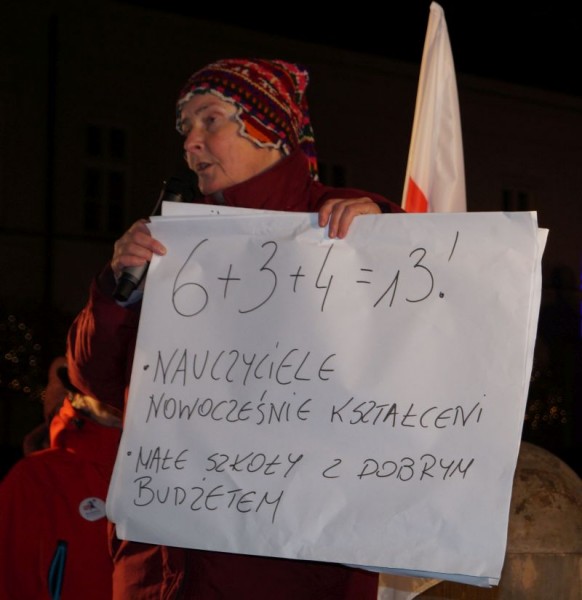 6+3+4=13!
• NAUCZYCIELE
NOWOCZEŚNIE KSZTAŁCENI
• MAŁE SZKOŁY Z DOBRYM
BUDŻETEM